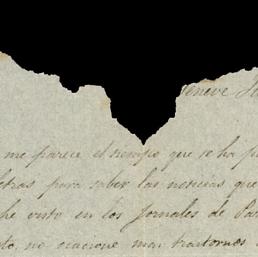 me parece el tiempo que se ha
letras para saber las noticias que
he visto en los Jornales de
no ocacione mas trastornos